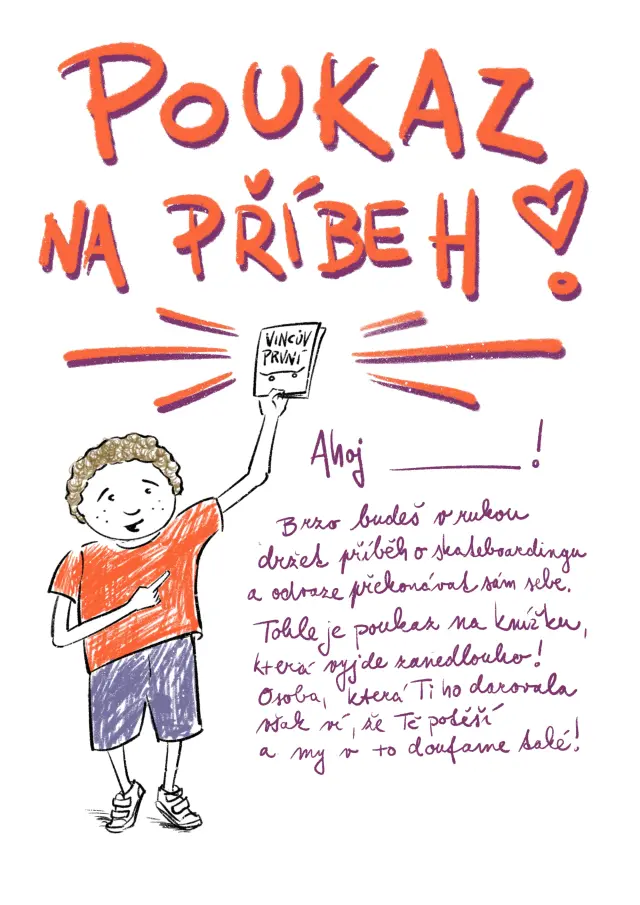 POUKAZ
NA PŘÍBEH!
VINCŮV
PRVNÍ
Ahoj ________!
Brzo budeš v rukou
držet příběh o skateboardingu
a odvaze překonávat sám sebe.
Tohle je poukaz na knížku,
která vyjde zanedlouho!
Osoba, která Ti ho darovala
však ví, že Tě potěší
a my v to doufáme také!